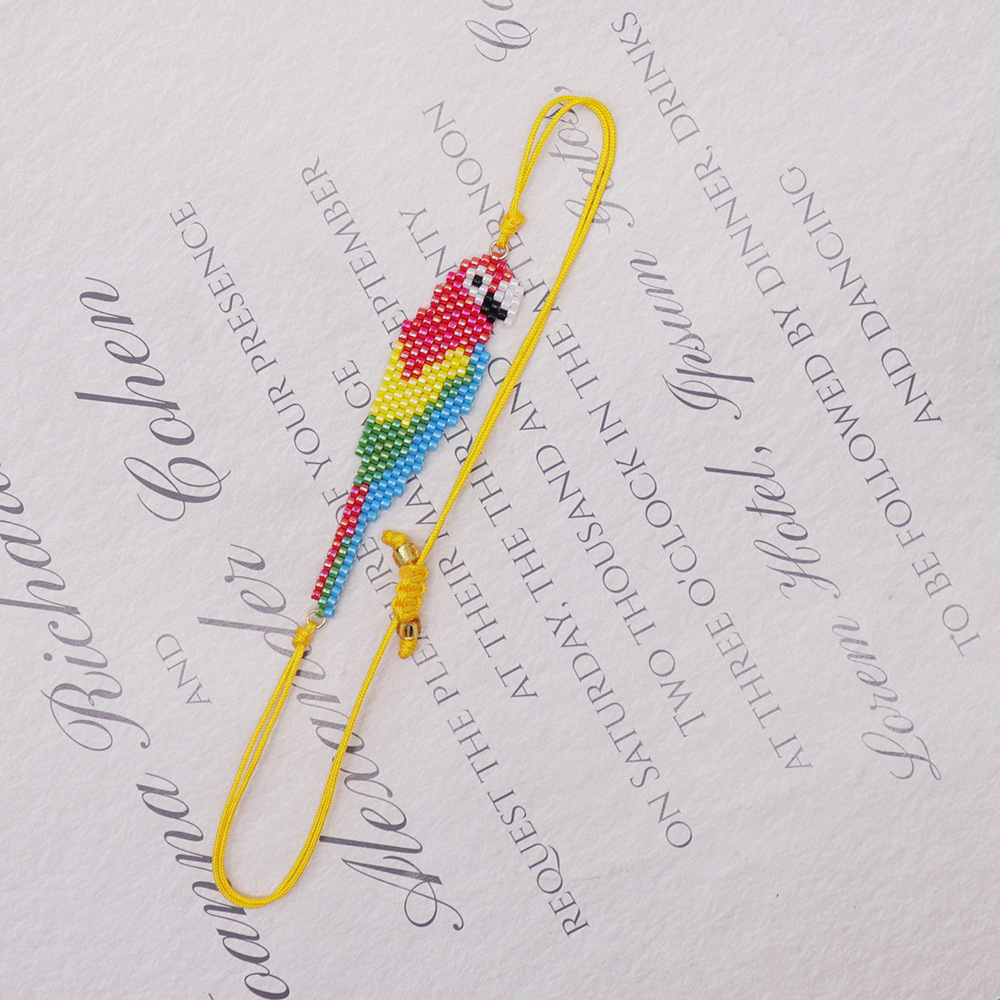 Alexander
AND
Richard Cohen
REQUEST THE PLEASURE OF YOUR PRESENCE
AT THEIR MARRIAGE
ON SATURDAY, THE SEPTEMBER
TWO THOUSAND AND
AT THREE O'CLOCK IN THE AFTERNOON
Lorem Hotel, Ipsum
TO BE FOLLOWED BY DINNER, DRINKS
AND DANCING